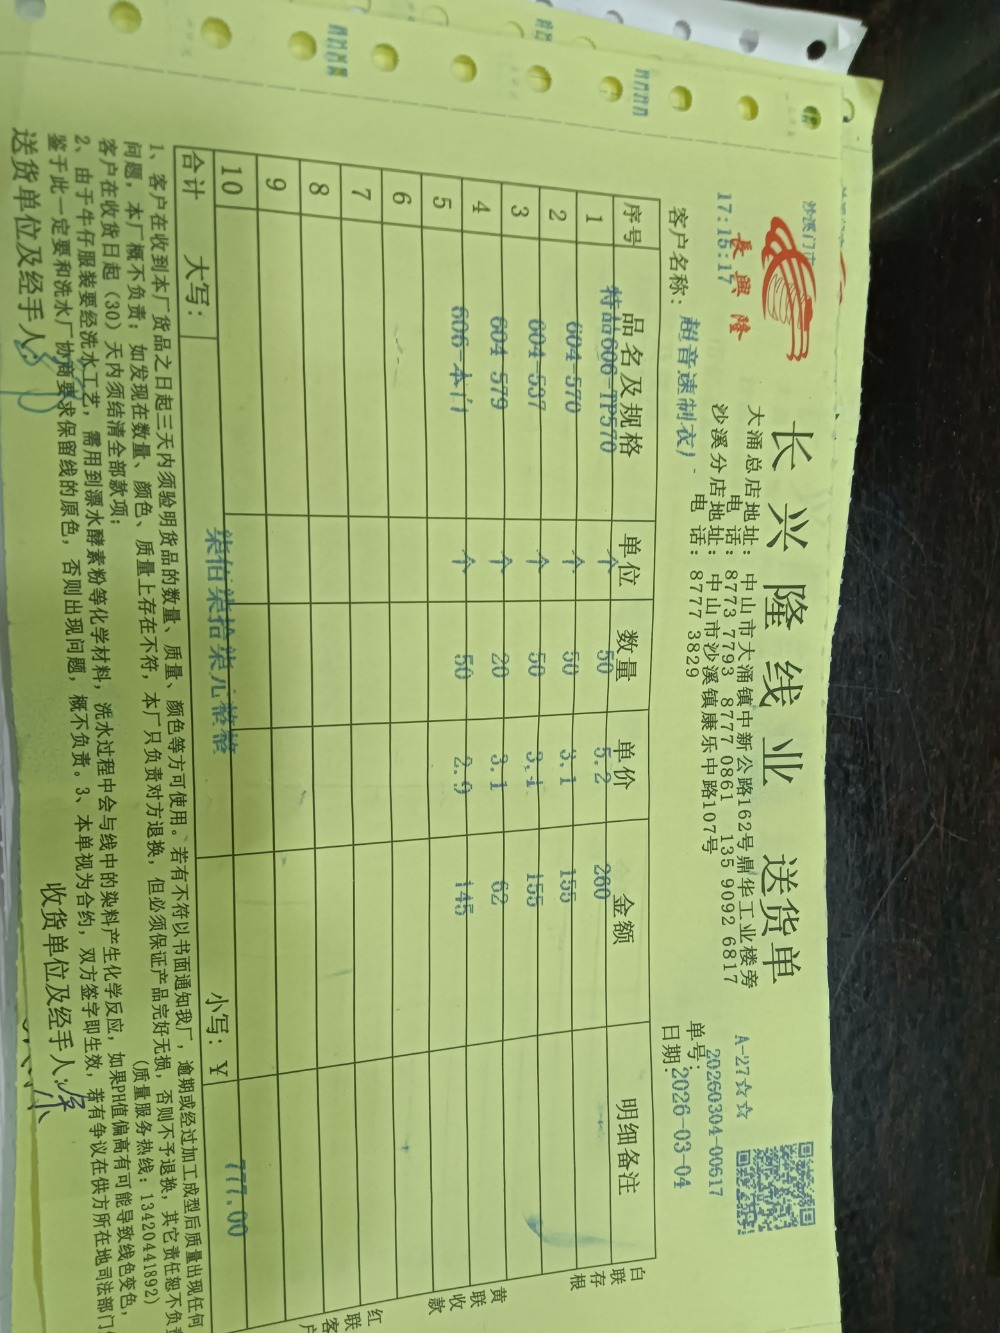 長興隆
17:15:17
长兴隆线业 送货单
大涌总店地址: 中山市大涌镇中新公路162号鼎华工业楼旁
电话: 8773 7793 8777 0861 135 9092 6817
沙溪分店地址: 中山市沙溪镇康乐中路107号
电话: 8777 3829
A-27☆☆
单号: 20260304-00617
日期: 2026-03-04
客户名称: 超音速制衣厂
序号 品名及规格 单位 数量 单价 金额 明细备注
1 特品606-TP570 个 50 5.2 260
2 604-570 个 50 3.1 155
3 604-537 个 50 3.1 155
4 604 579 个 20 3.1 62
5 606-本门 个 50 2.9 145
6
7
8
9
10
合计 大写: 柒佰柒拾柒元整 小写: ¥ 777.00
1、客户在收到本厂货品之日起三天内须验明货品的数量、质量、颜色等方可使用。若有不符以书面通知我厂, 逾期或经过加工成型后质量出现任何
问题, 本厂概不负责; 如发现在数量、颜色、质量上存在不符, 本厂只负责对方退换, 但必须保证产品完好无损, 否则不予退换, 其它责任恕不负责
客户在收货日起 (30) 天内须结清全部款项; (质量服务热线: 13420441892)
2、由于牛仔服装要经洗水工艺, 需用到漂水酵素粉等化学材料, 洗水过程中会与线中的染料产生化学反应, 如果PH值偏高有可能导致线色变色,
鉴于此一定要和洗水厂协商要求保留线的原色, 否则出现问题, 概不负责。3、本单视为合约, 双方签字即生效, 若有争议在供方所在地司法部门
送货单位及经手人: 收货单位及经手人:
白联存根
黄联收款
红联客户